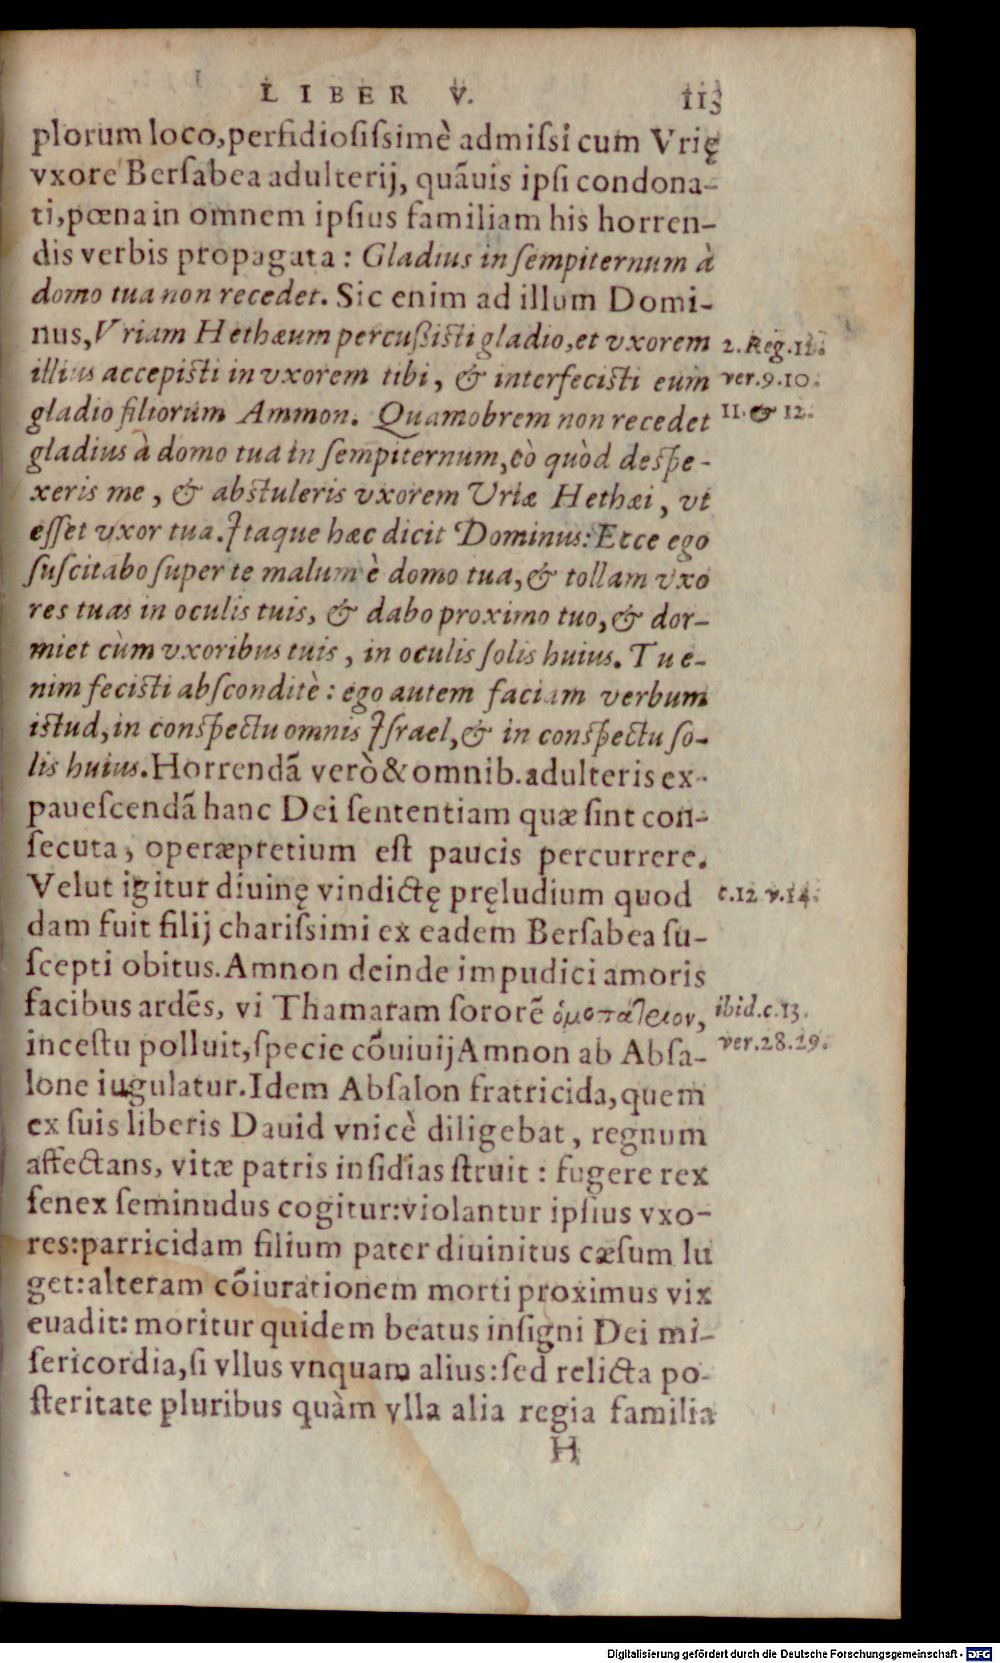 LIBER V. 113
plorum loco,perfidiosiſsimè admiſsi cum Vrię
vxore Berſabea adulterij, quãuis ipſi condona-
ti,pœna in omnem ipſius familiam his horren-
dis verbis propagata : Gladius in ſempiternum à
domo tua non recedet. Sic enim ad illum Domi-
nus,Vriam Hethæum percußiſti gladio,et vxorem
2. Reg.12.
illius accepiſti in vxorem tibi, & interfeciſti eum
ver.9.10.
gladio filiorum Ammon. Quamobrem non recedet
11. & 12.
gladius à domo tua in ſempiternum,eò quòd deſpe-
xeris me, & abſtuleris vxorem Vriæ Hethæi, vt
eſſet vxor tua. Itaque hæc dicit Dominus: Ecce ego
ſuſcitabo ſuper te malum è domo tua,& tollam vxo
res tuas in oculis tuis, & dabo proximo tuo,& dor-
miet cùm vxoribus tuis, in oculis ſolis huius. Tu e-
nim feciſti abſconditè : ego autem faciam verbum
iſtud,in conſpectu omnis Iſrael,& in conſpectu ſo-
lis huius. Horrendã verò & omnib. adulteris ex-
paueſcendã hanc Dei ſententiam quæ ſint con-
ſecuta, operæpretium eſt paucis percurrere.
Velut igitur diuinę vindictę pręludium quod
c.12 v.14.
dam fuit filij chariſsimi ex eadem Berſabea ſu-
ſcepti obitus. Amnon deinde impudici amoris
facibus ardẽs, vi Thamaram ſororẽ ὁμοπάτειον,
ibid.c.13.
inceſtu polluit,ſpecie cõuiuij Amnon ab Abſa-
ver.28.29.
lone iugulatur. Idem Abſalon fratricida,quem
ex ſuis liberis Dauid vnicè diligebat, regnum
affectans, vitæ patris inſidias ſtruit : fugere rex
ſenex ſeminudus cogitur:violantur ipſius vxo-
res:parricidam filium pater diuinitus cæſum lu
get:alteram cõiurationem morti proximus vix
euadit: moritur quidem beatus inſigni Dei mi-
ſericordia,ſi vllus vnquam alius:ſed relicta po-
ſteritate pluribus quàm vlla alia regia familia
H
Digitalisierung gefördert durch die Deutsche Forschungsgemeinschaft - DFG